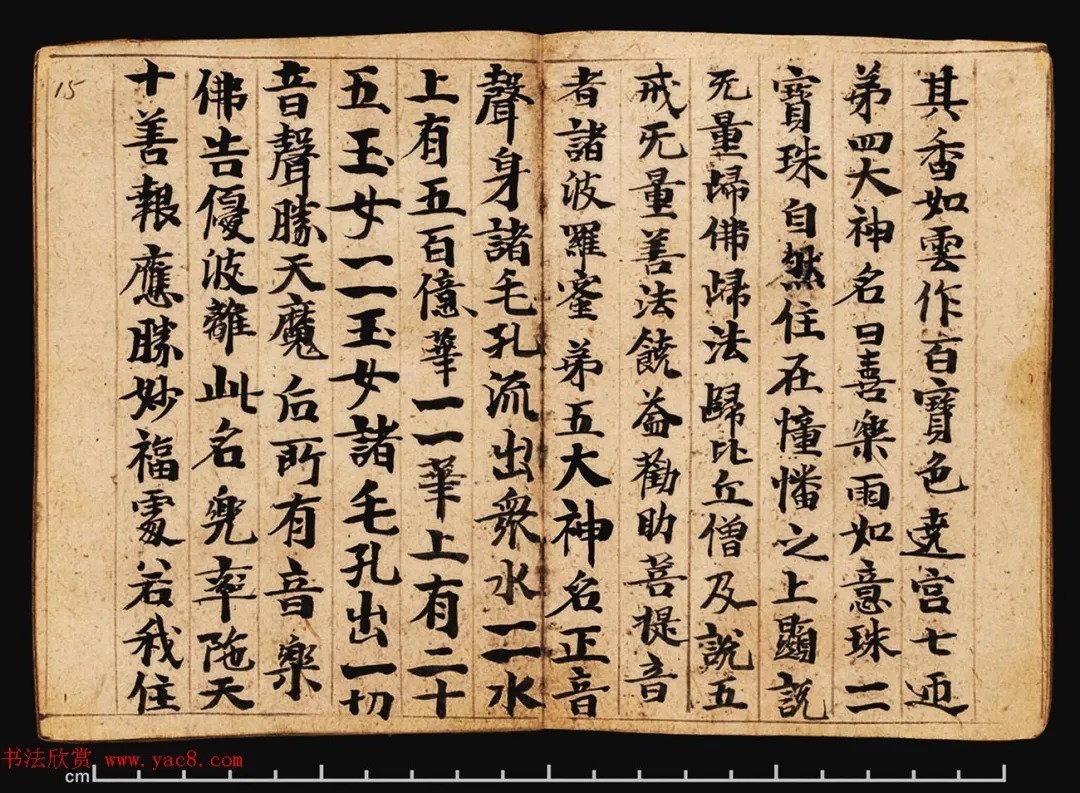 其香如雲作百寶色遶宫七迊
弟四大神名曰喜樂雨如意珠一一
寶珠自然住在憧憣之上顯説
无量歸佛歸法歸比丘僧及説五
戒无量善法饒益勸助菩提音
者諸波羅蜜弟五大神名正音
聲身諸毛孔流出衆水一一水
上有五百億華一一華上有二十
五玉女一一玉女諸毛孔出一切
音聲勝天魔后所有音樂
佛告優波離此名兜率陁天
十善報應勝妙福處若我住
15
书法欣赏 www.yac8.com
cm